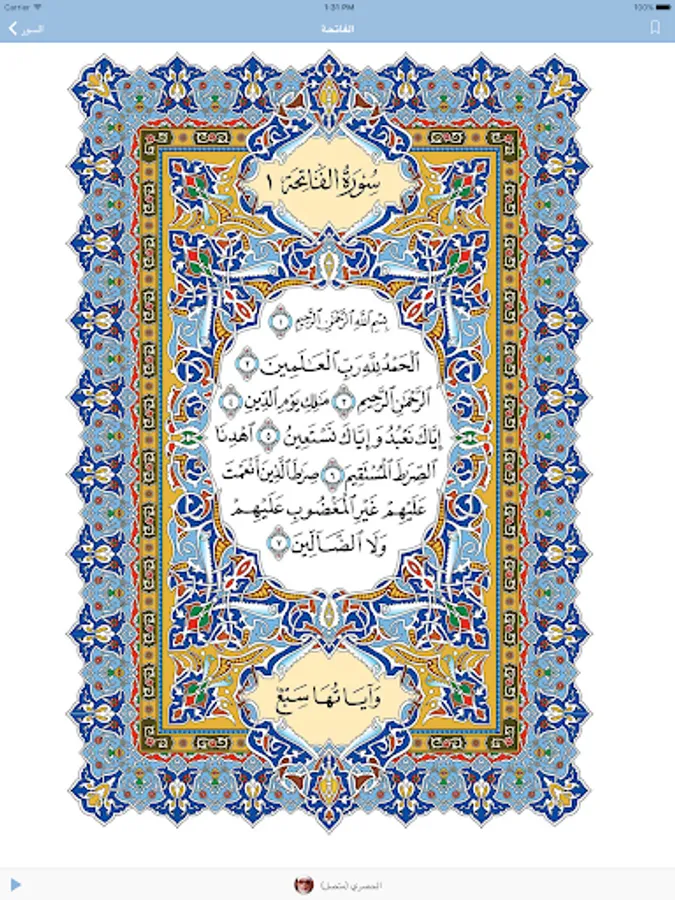 Carrier 1:31 PM 100%
السور الفاتحة
سُورَةُ الفَاتِحَة ١
بِسْمِ ٱللَّهِ ٱلرَّحْمَٰنِ ٱلرَّحِيمِ ١
ٱلْحَمْدُ لِلَّهِ رَبِّ ٱلْعَٰلَمِينَ ٢
ٱلرَّحْمَٰنِ ٱلرَّحِيمِ ٣ مَٰلِكِ يَوْمِ ٱلدِّينِ ٤
إِيَّاكَ نَعْبُدُ وَإِيَّاكَ نَسْتَعِينُ ٥ ٱهْدِنَا
ٱلصِّرَٰطَ ٱلْمُسْتَقِيمَ ٦ صِرَٰطَ ٱلَّذِينَ أَنْعَمْتَ
عَلَيْهِمْ غَيْرِ ٱلْمَغْضُوبِ عَلَيْهِمْ
وَلَا ٱلضَّآلِّينَ ٧
وَآيَاتُهَا سَبْعٌ
الحصري (متصل)